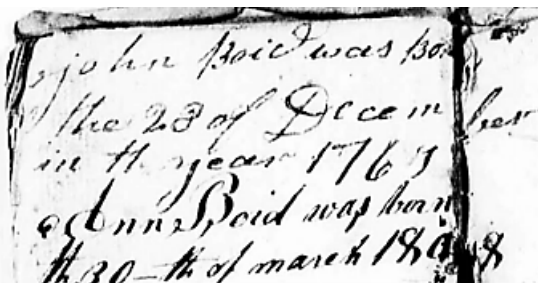 john Boid was Bor
the 23 of Decem ber
in th year 1767
Ann Boid was born
th 30-th of march